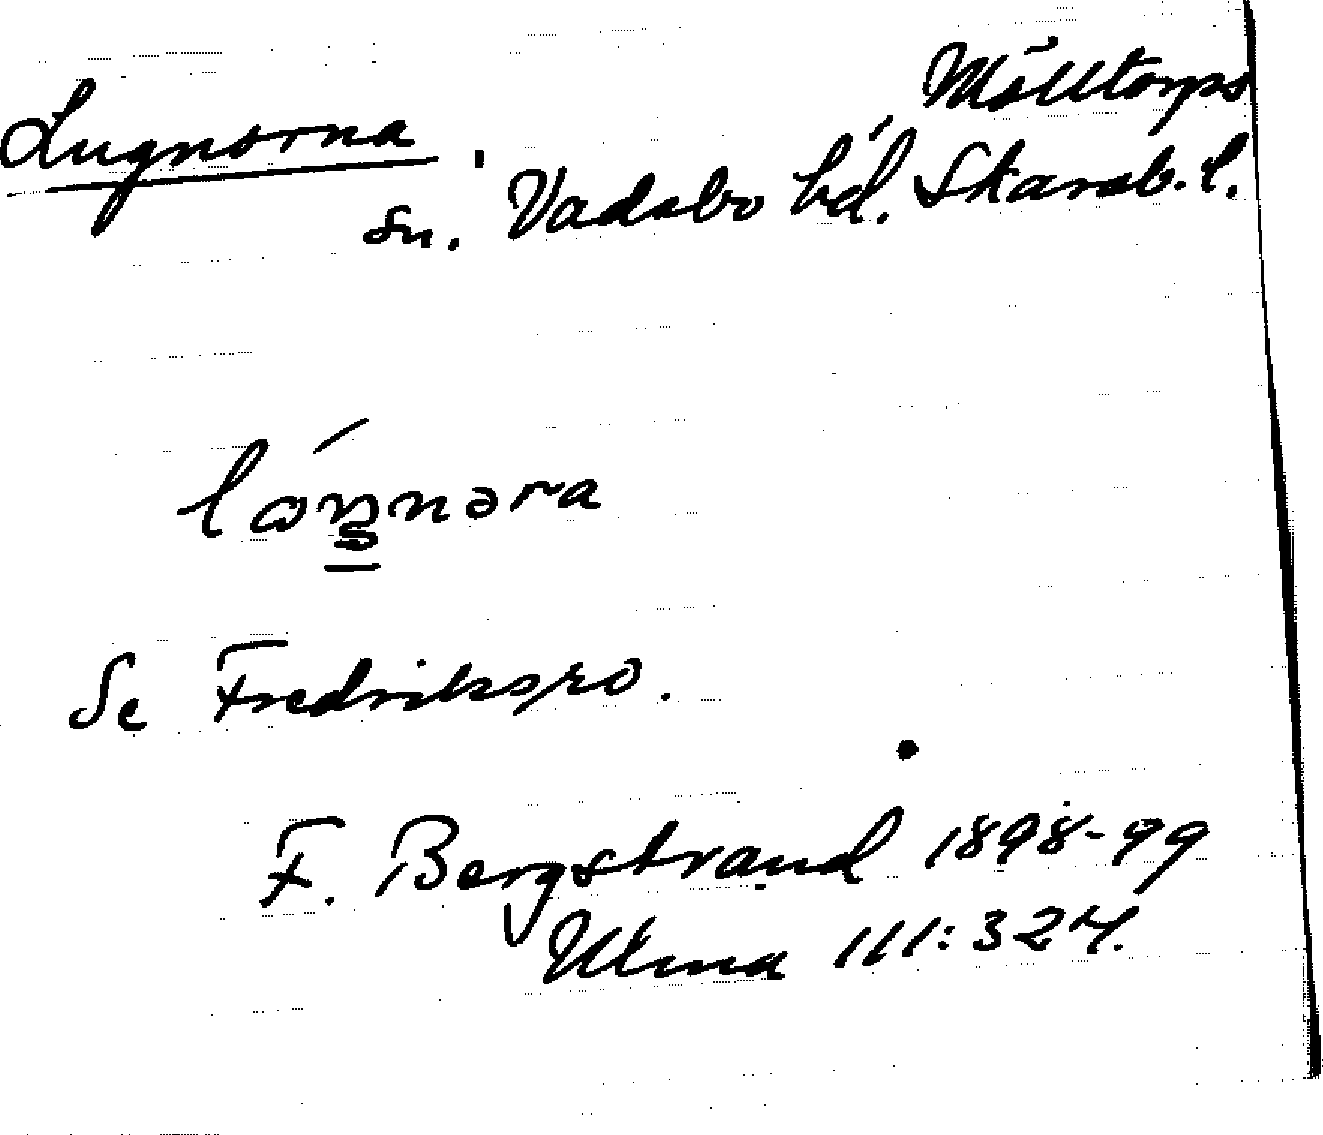 Mölltorps
Lugnorna, sn. Vadsbo hd. Skarab. l.
Se Fredriksro.
F. Bergstrand 1898-99
Ulma 111:324.